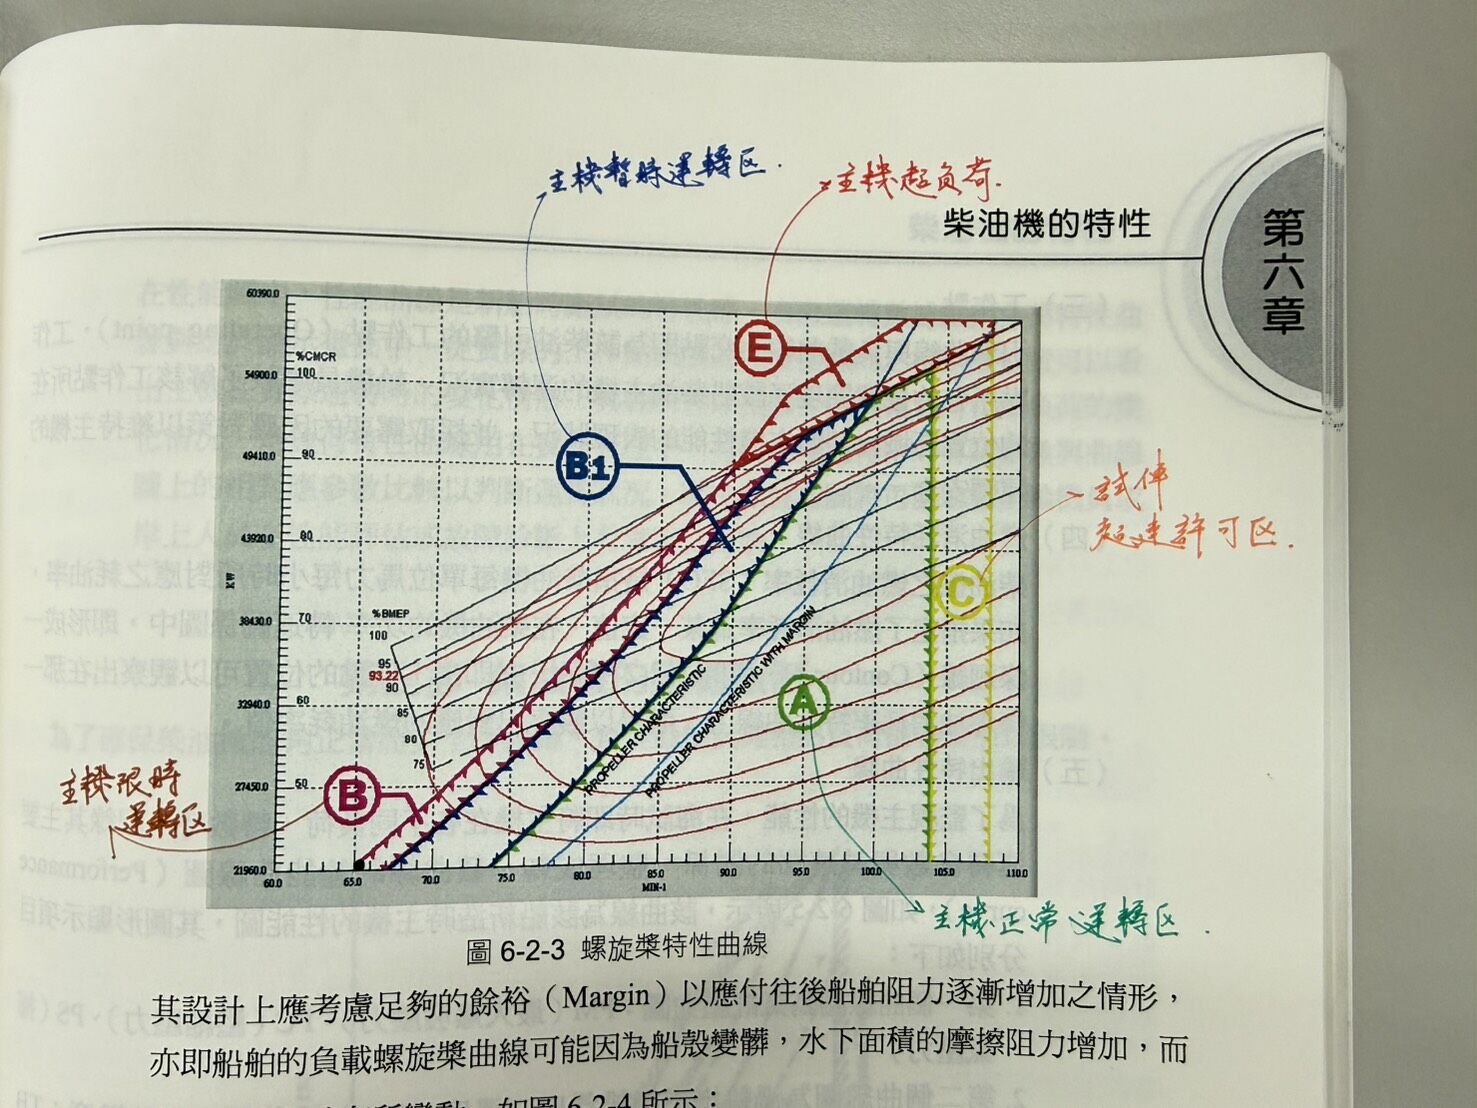 主機暫時運轉区.
主機超負荷.
柴油機的特性
第六章
60390.0
%CMCR
54900.0
100
E
B1
49410.0
90
試俥
超速許可区.
43920.0
80
KW
C
%BMEP
38430.0
70
100
95
93.22
90
32940.0
60
85
80
75
A
PROPELLER CHARACTERISTIC
PROPELLER CHARACTERISTIC WITH MARGIN
主機限時
運轉区
27450.0
50
B
21960.0
60.0 65.0 70.0 75.0 80.0 85.0 90.0 95.0 100.0 105.0 110.0
MIN-1
主機正常運轉区.
圖 6-2-3 螺旋槳特性曲線
其設計上應考慮足夠的餘裕（Margin）以應付往後船舶阻力逐漸增加之情形，
亦即船舶的負載螺旋槳曲線可能因為船殼變髒，水下面積的摩擦阻力增加，而
如圖 6-2-4 所示：